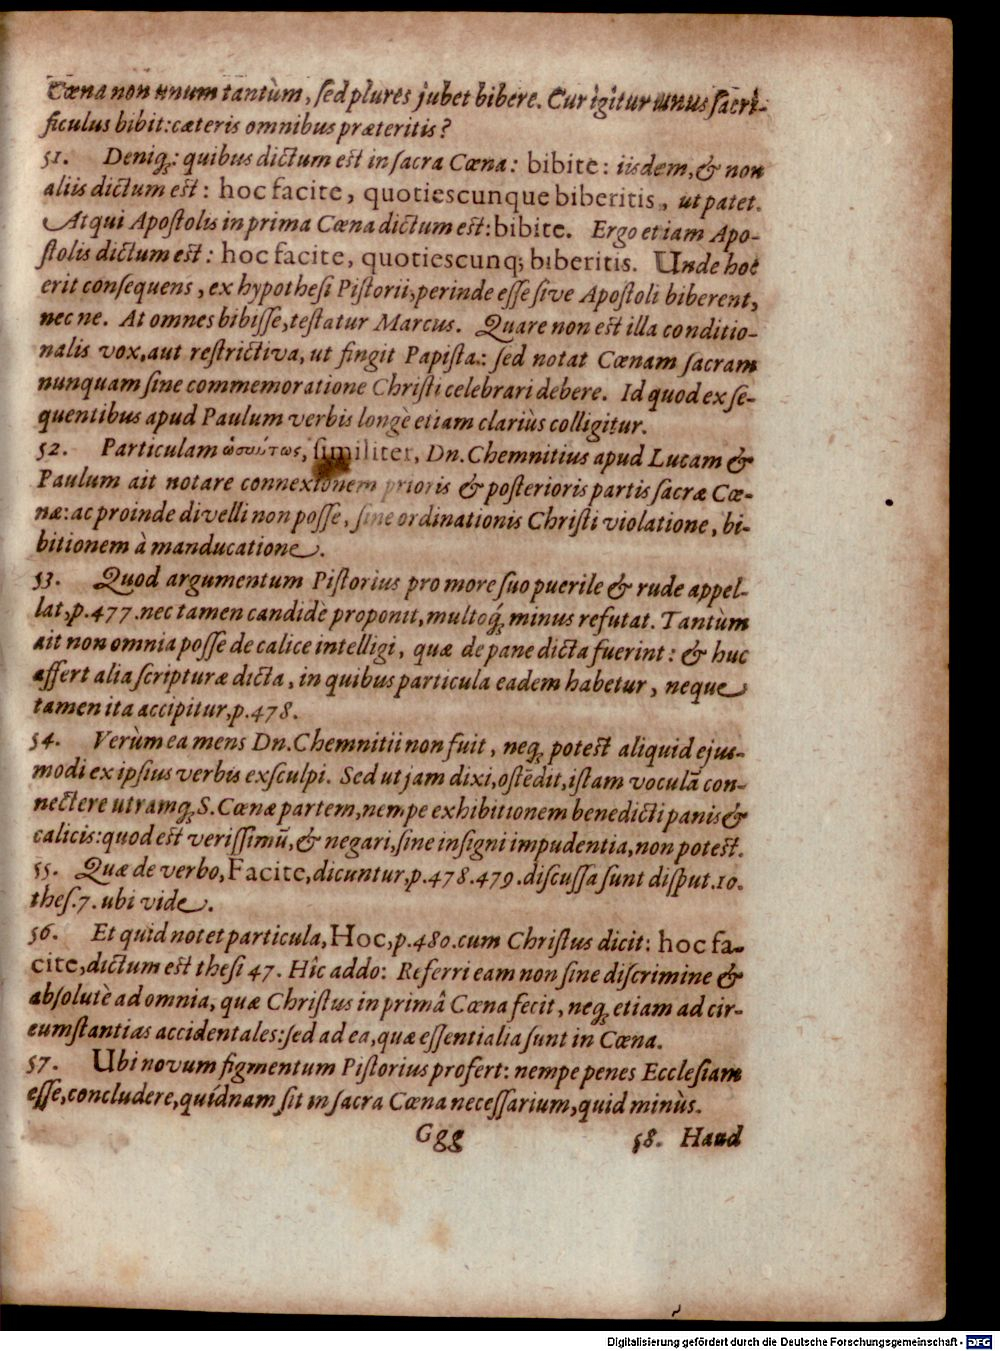 Cœna non unum tantùm, ſed plures jubet bibere. Cur igitur unus ſacri-
ficulus bibit: cæteris omnibus præteritis?
51. Deniq;: quibus dictum est in ſacra Cœna: bibite: iisdem, & non
aliis dictum est: hoc facite, quotiescunque biberitis, ut patet.
Atqui Apoſtolis in prima Cœna dictum est: bibite. Ergo etiam Apo-
ſtolis dictum est: hoc facite, quotiescunq; biberitis. Unde hoc
erit conſequens, ex hypotheſi Piſtorii, perinde eſſe ſive Apoſtoli biberent,
nec ne. At omnes bibiſſe, teſtatur Marcus. Quare non eſt illa conditio-
nalis vox, aut reſtrictiva, ut fingit Papiſta: ſed notat Cœnam ſacram
nunquam ſine commemoratione Chriſti celebrari debere. Id quod ex ſe-
quentibus apud Paulum verbis longè etiam clariùs colligitur.
52. Particulam ὡσαύτως, ſimiliter, Dn. Chemnitius apud Lucam &
Paulum ait notare connexionem prioris & poſterioris partis ſacræ Cœ-
næ: ac proinde divelli non poſſe, ſine ordinationis Chriſti violatione, bi-
bitionem à manducatione.
53. Quod argumentum Piſtorius pro more ſuo puerile & rude appel-
lat, p. 477. nec tamen candidè proponit, multoq; minus refutat. Tantùm
ait non omnia poſſe de calice intelligi, quæ de pane dicta fuerint: & huc
affert alia ſcripturæ dicta, in quibus particula eadem habetur, neque
tamen ita accipitur, p. 478.
54. Verùm ea mens Dn. Chemnitii non fuit, neq; potest aliquid ejus-
modi ex ipſius verbis exſculpi. Sed ut jam dixi, oſtēdit, iſtam voculā con-
nectere utramq; S. Cœnæ partem, nempe exhibitionem benedicti panis &
calicis: quod est veriſſimū, & negari, ſine inſigni impudentia, non potest.
55. Quæ de verbo, Facite, dicuntur, p. 478. 479. diſcuſſa ſunt diſput. 10.
theſ. 7. ubi vide.
56. Et quid notet particula, Hoc, p. 480. cum Chriſtus dicit: hoc fa-
cite, dictum est theſi 47. Hîc addo: Referri eam non ſine diſcrimine &
abſolutè ad omnia, quæ Chriſtus in primâ Cœna fecit, neq; etiam ad cir-
cumſtantias accidentales: ſed ad ea, quæ eſſentialia ſunt in Cœna.
57. Ubi novum figmentum Piſtorius profert: nempe penes Eccleſiam
eſſe, concludere, quídnam ſit in ſacra Cœna neceſſarium, quid minùs.
Ggg 58. Haud
Digitalisierung gefördert durch die Deutsche Forschungsgemeinschaft - DFG